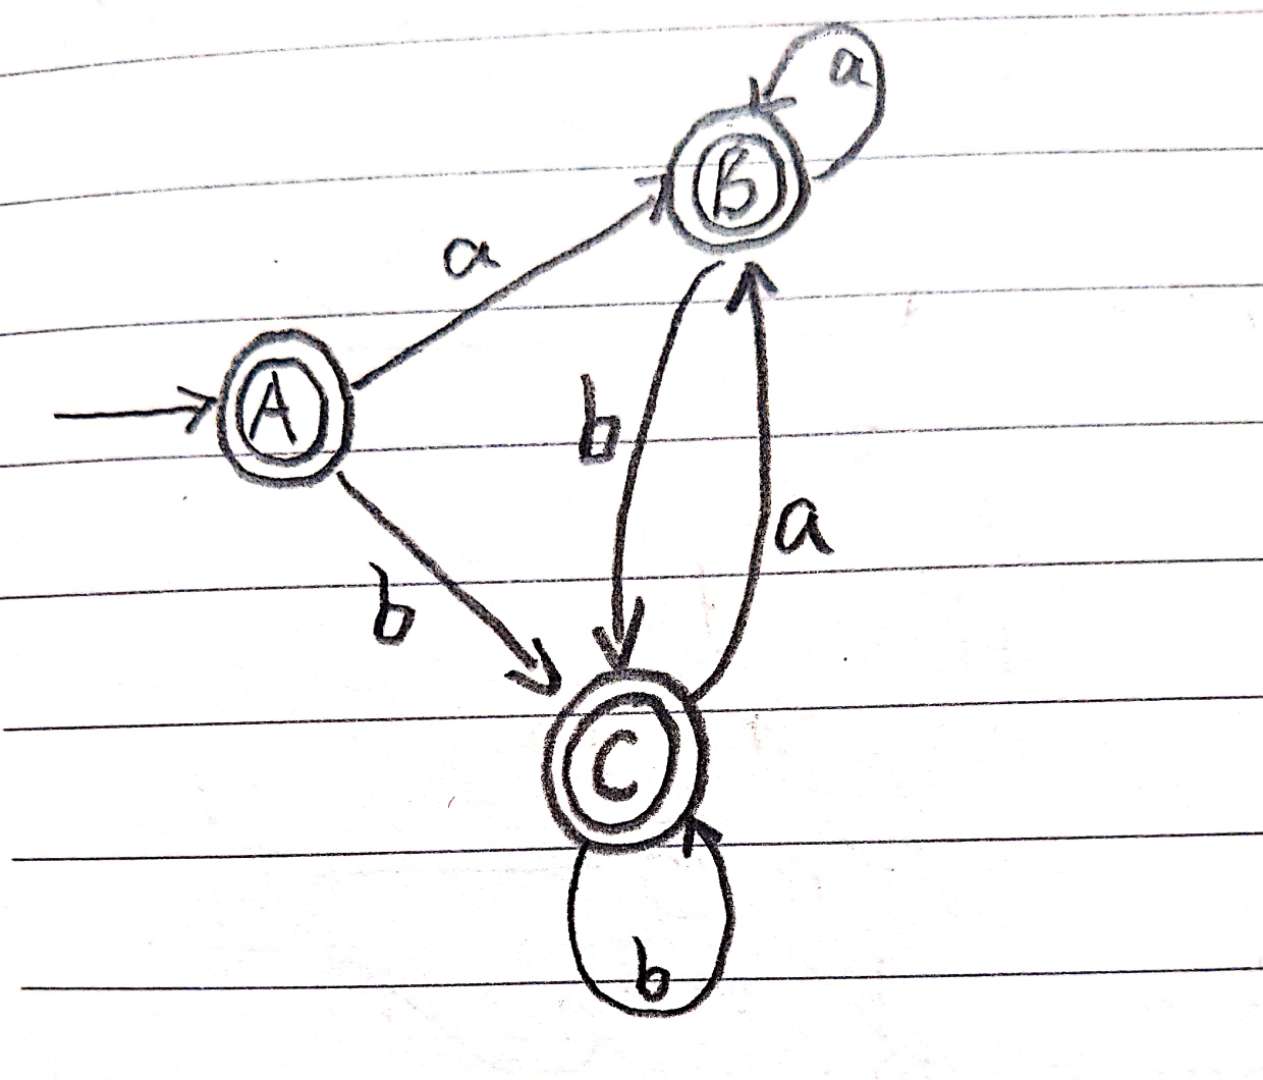 a
B
a
A
b
a
b
C
b